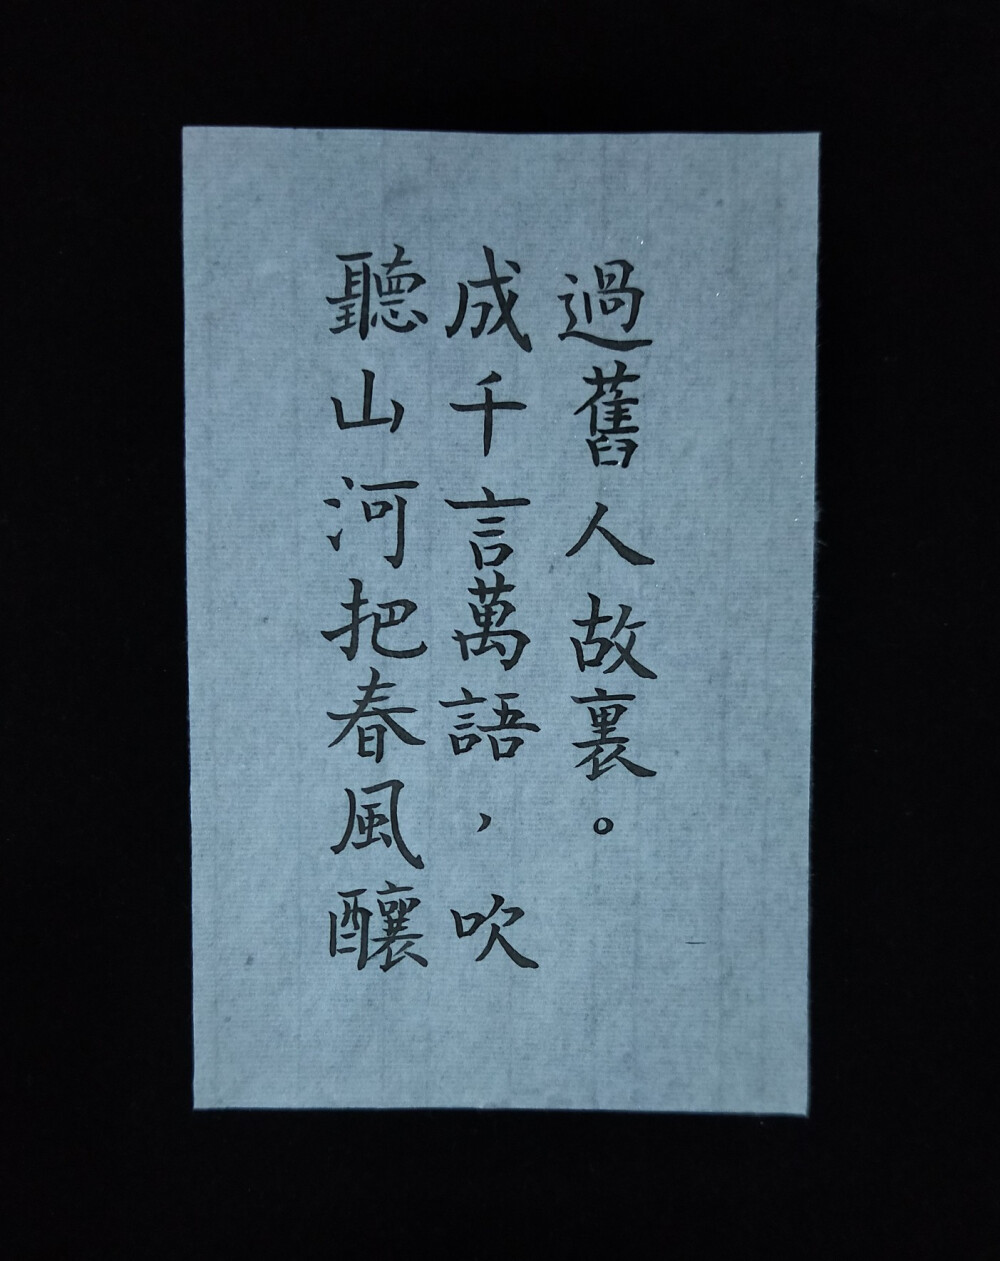 聽山河把春風釀
成千言萬語，吹
過舊人故裏。